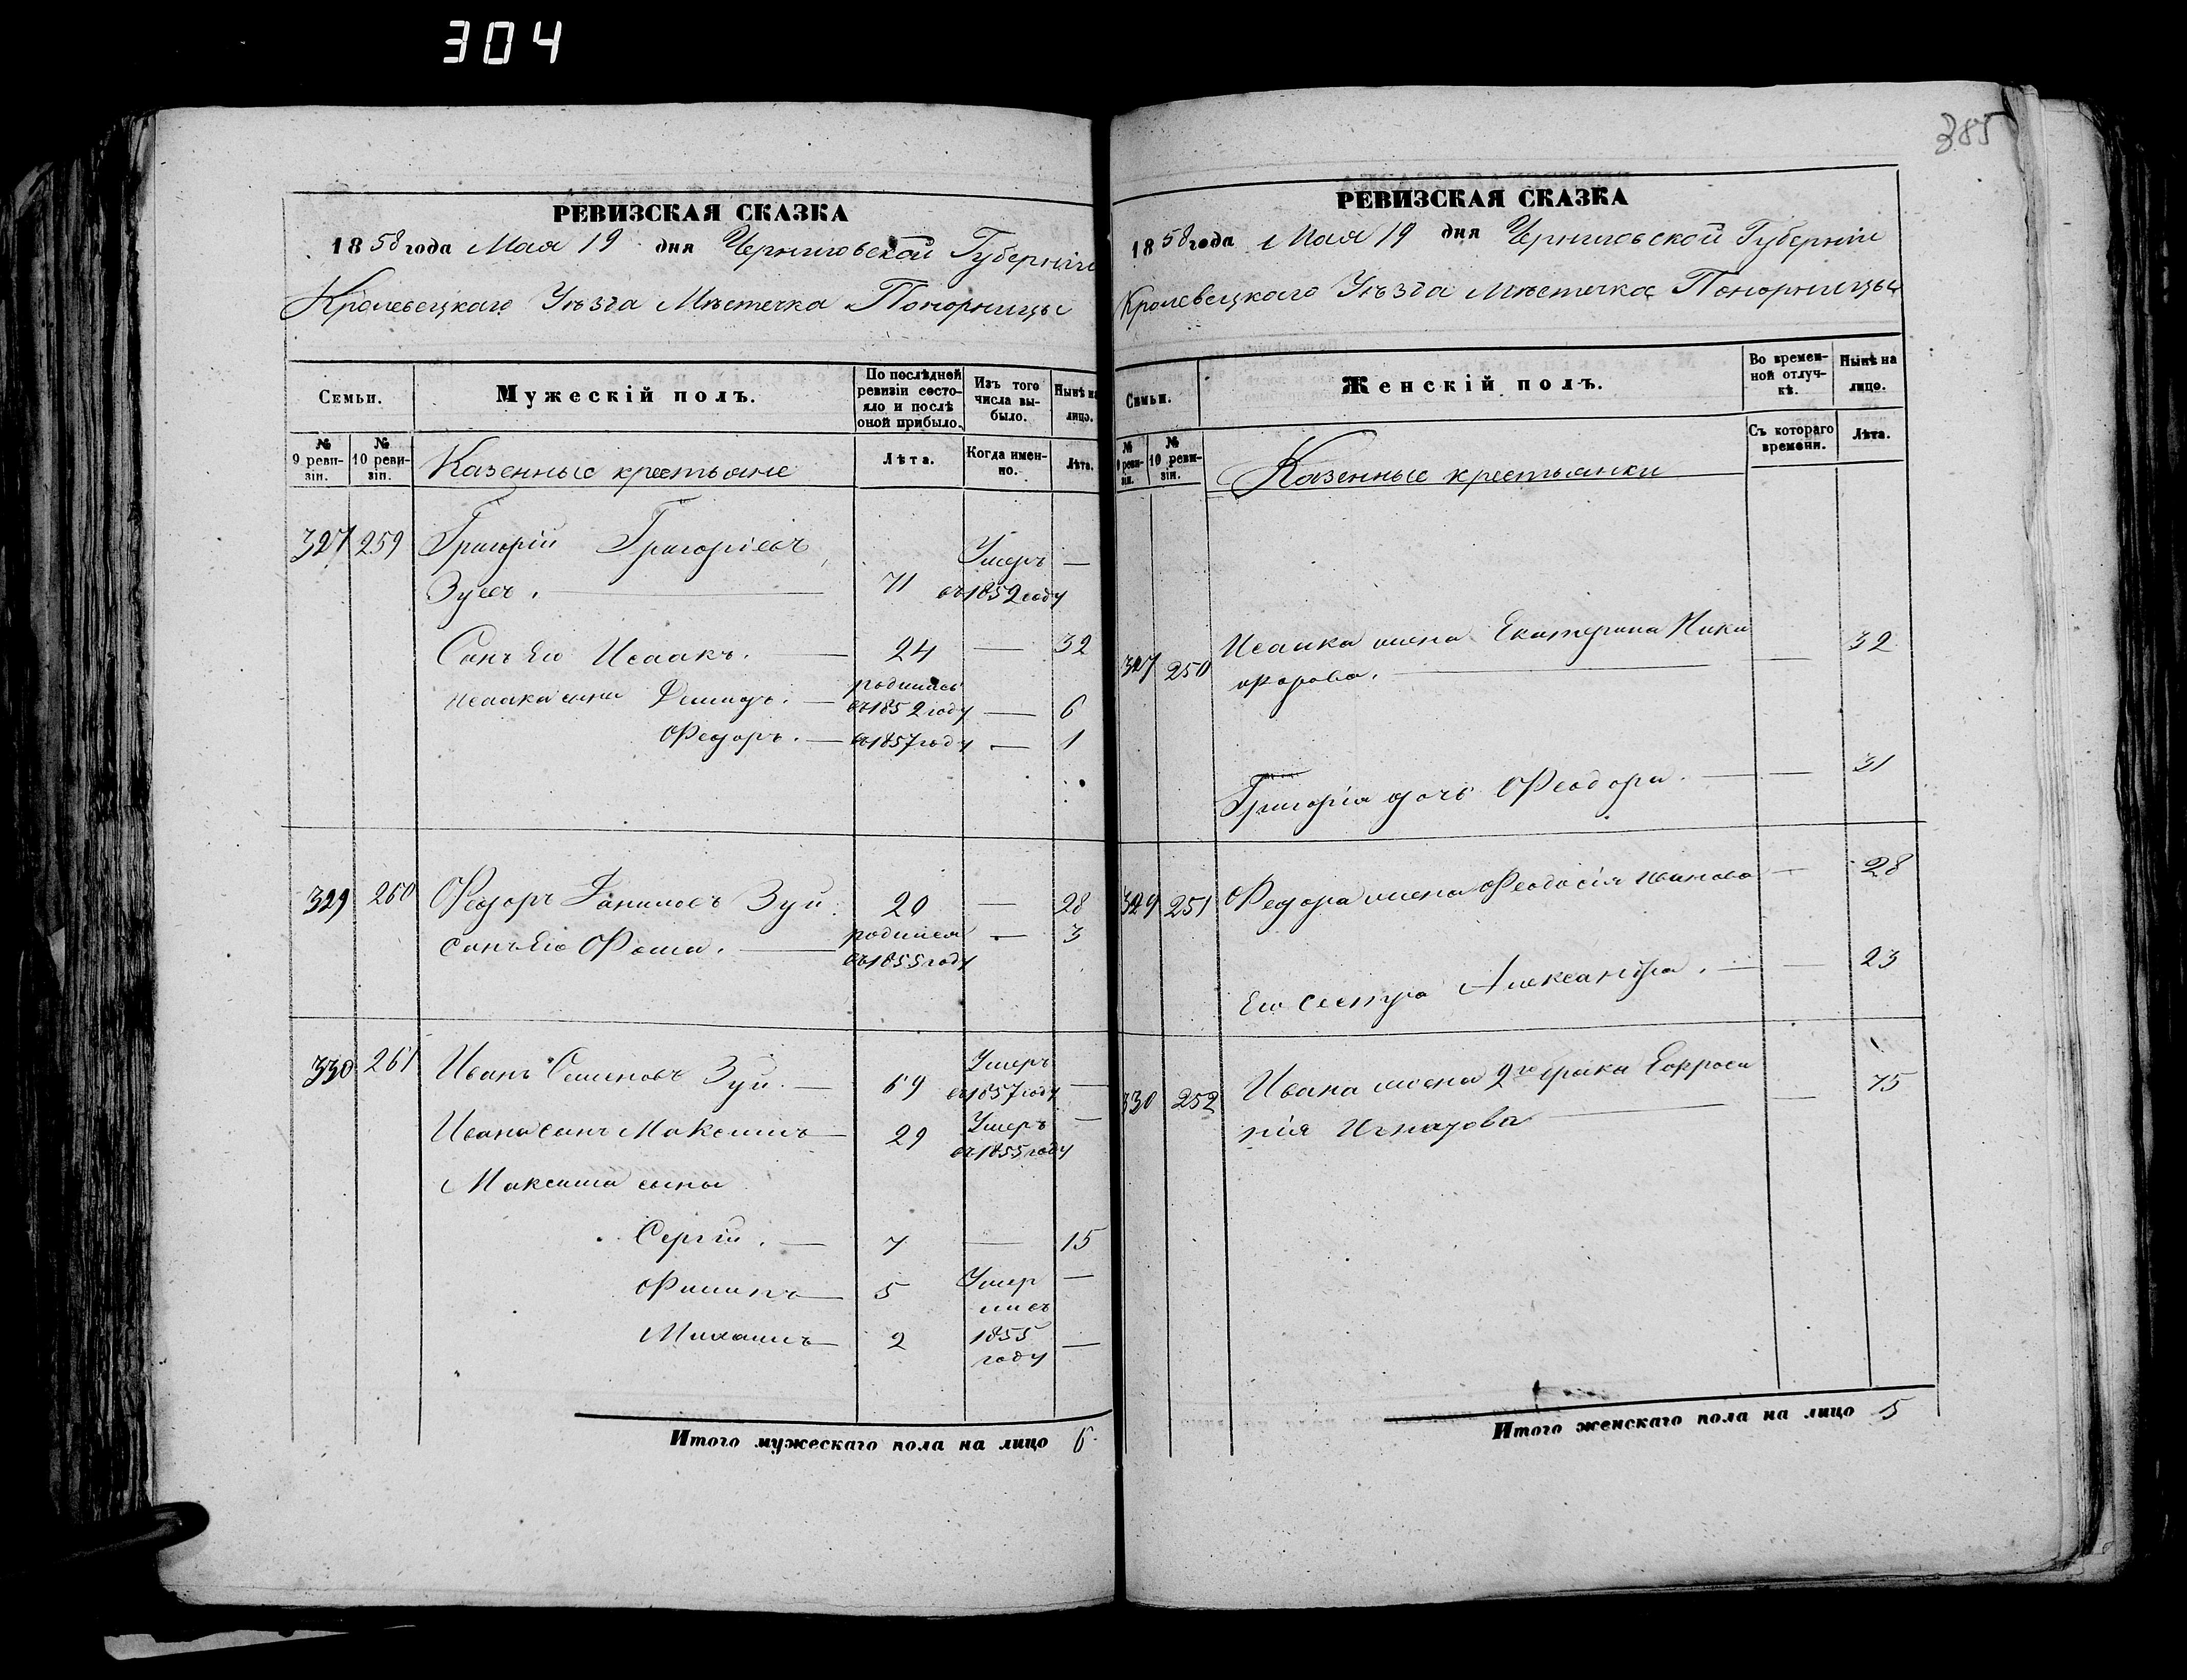 304
385
РЕВИЗСКАЯ СКАЗКА
1858 года Мая 19 дня Черниговской Губерніи
Кролевецкаго Уѣзда Мѣстечка Понорницы
Семьи.
Мужескій полъ.
По послѣдней ревизіи состо-
яло и послѣ
оной прибыло.
Изъ того
числа вы-
было.
Нынѣ на
лицо.
№
9 реви-
зіи.
№
10 реви-
зіи.
Казенные крестьяне
Лѣта.
Когда имен-
но.
Лѣта.
327 259 Григорій Григоріевъ
Зуевъ. 71 Умеръ въ 1852 году —
Сынъ его Исаакъ. — 24 — 32
Исаака сыны — родились въ 1852 году — 6
Федоръ. — въ 1857 году — 1
329 260 Федоръ Зуй. 20 — 28
Сынъ его Фома. — родился въ 1855 году — 3
330 261 Иванъ Семеновъ Зуй. — 69 Умеръ въ 1857 году —
Ивана сынъ Максимъ — 29 Умеръ въ 1855 году —
Максима сыны
Сергій. — 7 — 15
Филипъ — 5 Умер —
Михаилъ — 2 ли въ 1855 году —
Итого мужескаго пола на лицо 6
РЕВИЗСКАЯ СКАЗКА
1858 года Мая 19 дня Черниговской Губерніи
Кролевецкаго Уѣзда Мѣстечка Понорницы
Семьи.
Женскій полъ.
Во времен-
ной отлуч-
кѣ.
Нынѣ на
лицо.
№
9 реви-
зіи.
№
10 реви-
зіи.
Казенные крестьянки
Съ котораго
времени.
Лѣта.
327 250 Исаака жена Екатерина Ники
форова. — — 32
Григорія дочь Феодора. — — 31
329 251 Федора жена Феодосія Иванова — 28
Его сестра Александра. — — 23
330 252 Ивана жена 2го брака Евфроси
нія — — 75
Итого женскаго пола на лицо 5